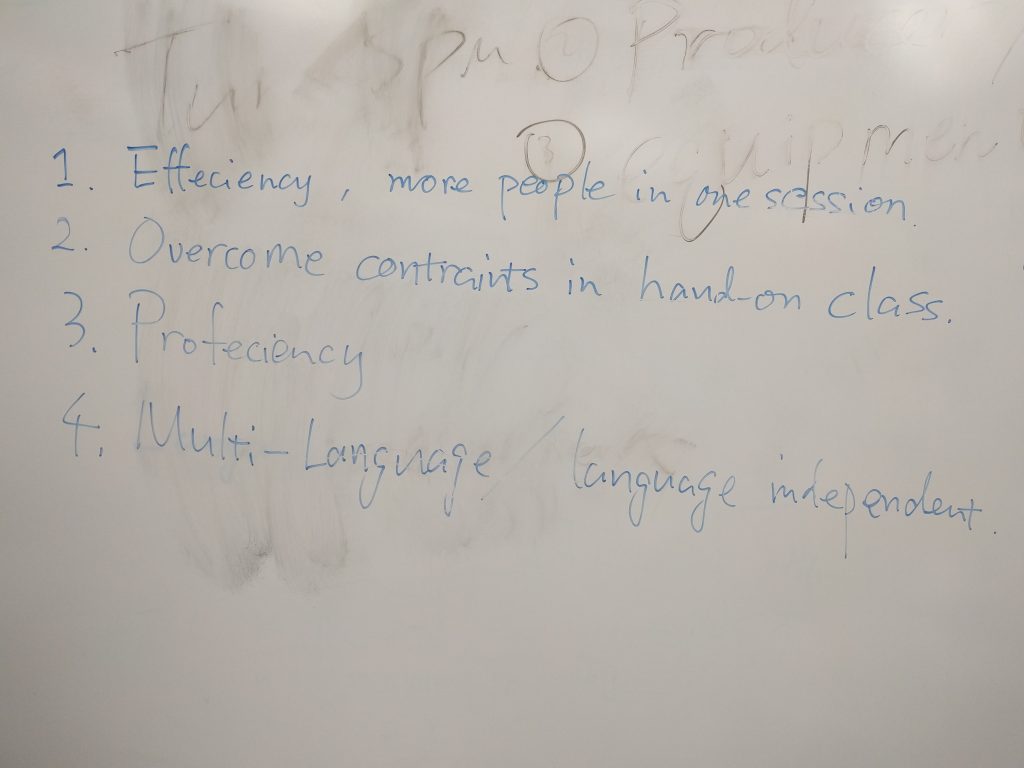 Tu 5pm ② Produc
③ equipment
1. Effeciency, more people in one session.
2. Overcome contraints in hand-on class.
3. Profeciency
4. Multi-Language / language independent.